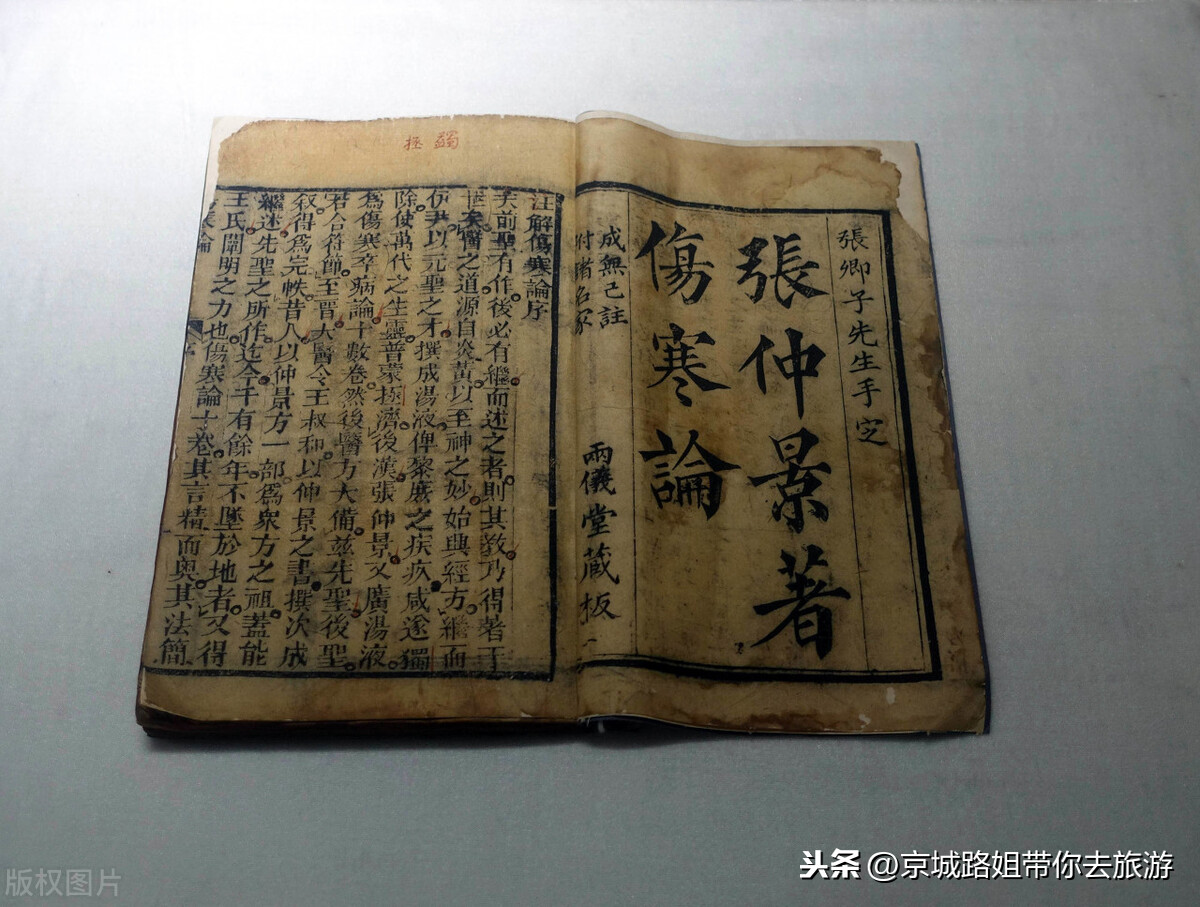 張卿子先生手定
張仲景著
傷寒論
成無己註
附諸名家
兩儀堂藏板
蠲 拯
注解傷寒論序
夫前聖有作後必有繼而述之者則其教乃得著于
世矣醫之道源自炎黃以至神之妙始興經方繼而
伊尹以元聖之才撰成湯液俾黎庶之疾疚咸遂蠲
除使萬代之生靈普蒙拯濟後漢張仲景又廣湯液
為傷寒卒病論十數卷然後醫方大備茲先聖後聖
若合符節至晉太醫令王叔和以仲景之書撰次成
叙得為完帙昔人以仲景方一部為眾方之祖蓋能
繼述先聖之所作迄今千有餘年不墜於地者又得
王氏闡明之力也傷寒論十卷其言精而奧其法簡
頭条 @京城路姐带你去旅游
版权图片